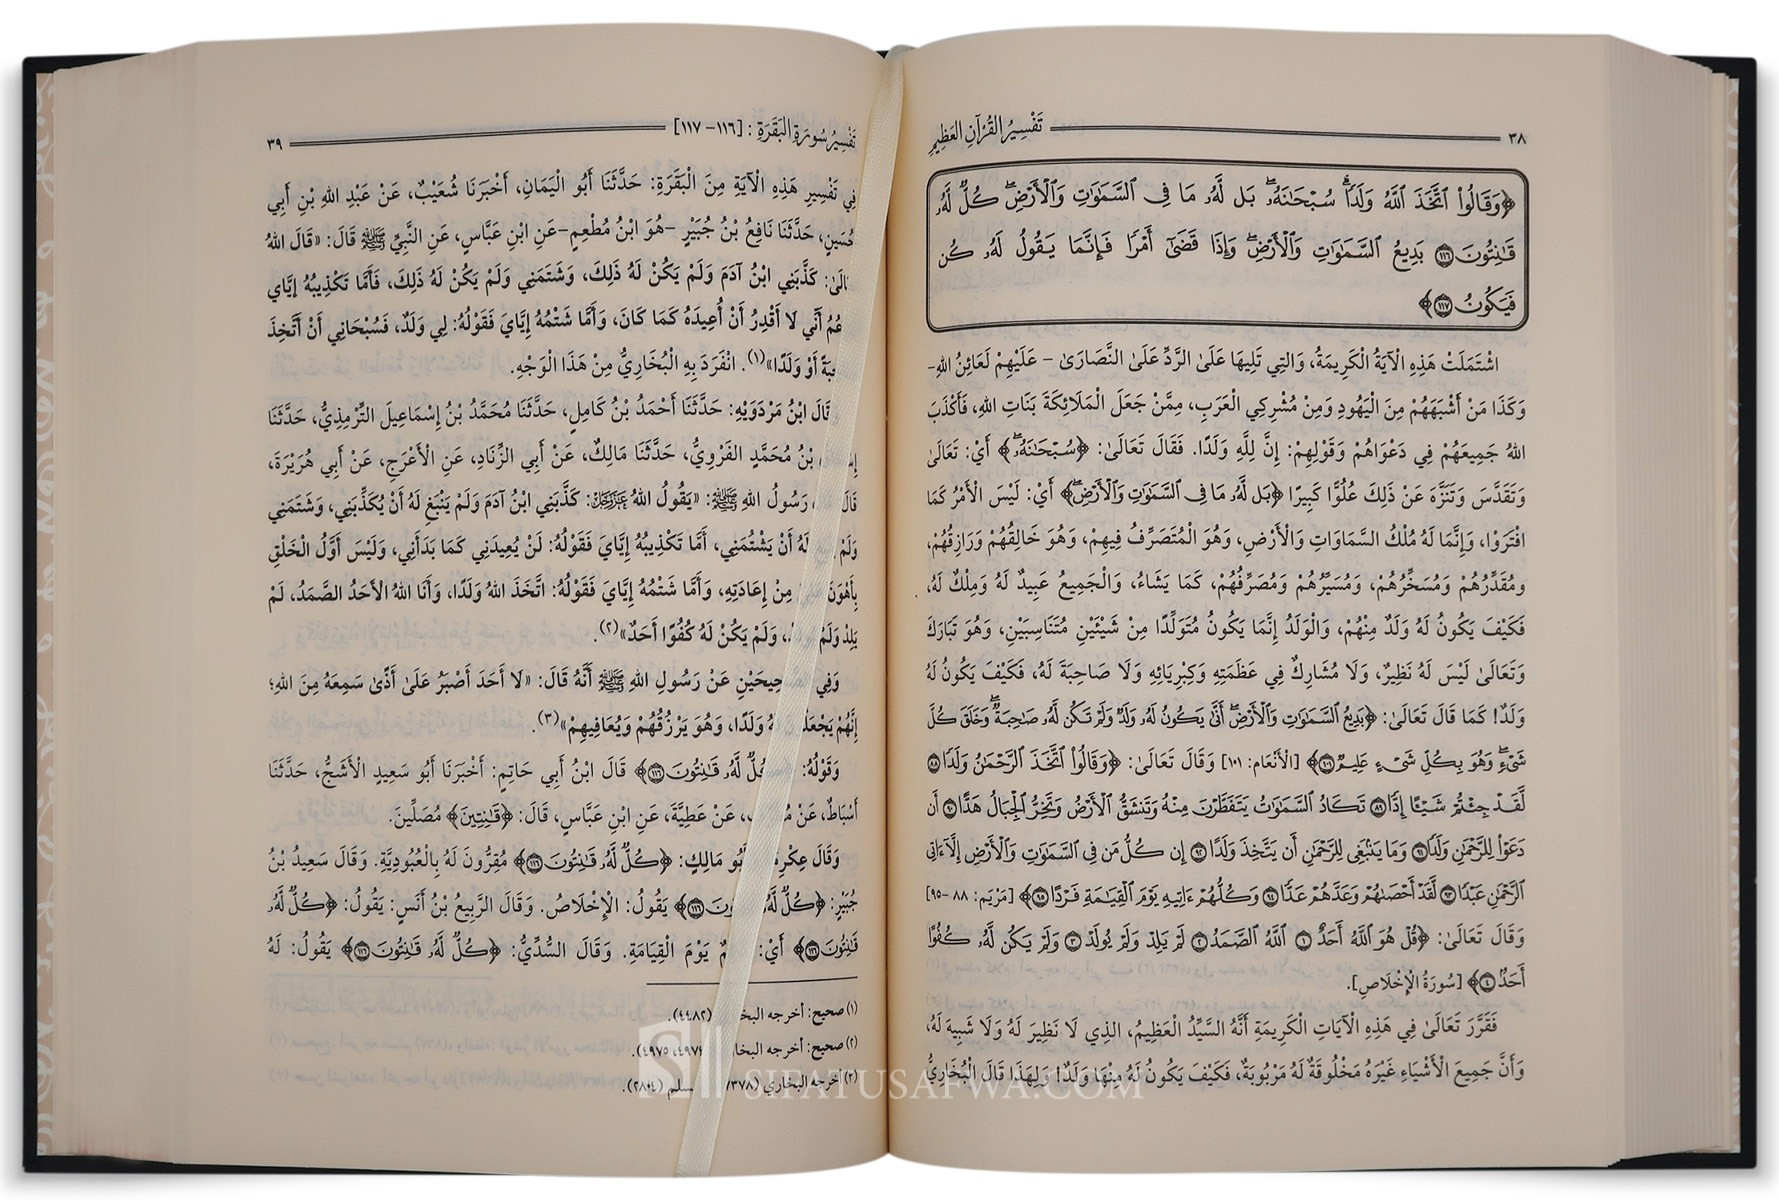 ٣٨
تَفْسِيرُ القُرْآنِ العَظِيمِ
﴿وَقَالُوا۟ ٱتَّخَذَ ٱللَّهُ وَلَدًۭا ۗ سُبْحَـٰنَهُۥ ۖ بَل لَّهُۥ مَا فِى ٱلسَّمَـٰوَٰتِ وَٱلْأَرْضِ ۖ كُلٌّۭ لَّهُۥ
قَـٰنِتُونَ ١١٦ بَدِيعُ ٱلسَّمَـٰوَٰتِ وَٱلْأَرْضِ ۖ وَإِذَا قَضَىٰٓ أَمْرًۭا فَإِنَّمَا يَقُولُ لَهُۥ كُن
فَيَكُونُ ١١٧﴾
اشْتَمَلَتْ هَذِهِ الْآيَةُ الْكَرِيمَةُ، وَالتِي تَلِيهَا عَلَىٰ الرَّدِّ عَلَىٰ النَّصَارَىٰ - عَلَيْهِمْ لَعَائِنُ اللهِ-
وَكَذَا مَنْ أَشْبَهَهُمْ مِنَ الْيَهُودِ وَمِنْ مُشْرِكِي الْعَرَبِ، مِمَّنْ جَعَلَ الْمَلَائِكَةَ بَنَاتِ اللهِ، فَأَكْذَبَ
اللهُ جَمِيعَهُمْ فِي دَعْوَاهُمْ وَقَوْلِهِمْ: إِنَّ لِلَّهِ وَلَدًا. فَقَالَ تَعَالَىٰ: ﴿سُبْحَـٰنَهُۥ ۖ﴾ أَيْ: تَعَالَىٰ
وَتَقَدَّسَ وَتَنَزَّهَ عَنْ ذَلِكَ عُلُوًّا كَبِيرًا ﴿بَل لَّهُۥ مَا فِى ٱلسَّمَـٰوَٰتِ وَٱلْأَرْضِ ۖ﴾ أَيْ: لَيْسَ الْأَمْرُ كَمَا
افْتَرَوْا، وَإِنَّمَا لَهُ مُلْكُ السَّمَاوَاتِ وَالْأَرْضِ، وَهُوَ الْمُتَصَرِّفُ فِيهِمْ، وَهُوَ خَالِقُهُمْ وَرَازِقُهُمْ،
وَمُقَدِّرُهُمْ وَمُسَخِّرُهُمْ، وَمُسَيِّرُهُمْ وَمُصَرِّفُهُمْ، كَمَا يَشَاءُ، وَالْجَمِيعُ عَبِيدٌ لَهُ وَمِلْكٌ لَهُ،
فَكَيْفَ يَكُونُ لَهُ وَلَدٌ مِنْهُمْ، وَالْوَلَدُ إِنَّمَا يَكُونُ مُتَوَلِّدًا مِنْ شَيْئَيْنِ مُتَنَاسِبَيْنِ، وَهُوَ تَبَارَكَ
وَتَعَالَىٰ لَيْسَ لَهُ نَظِيرٌ، وَلَا مُشَارِكٌ فِي عَظَمَتِهِ وَكِبْرِيَائِهِ وَلَا صَاحِبَةَ لَهُ، فَكَيْفَ يَكُونُ لَهُ
وَلَدٌ! كَمَا قَالَ تَعَالَىٰ: ﴿بَدِيعُ ٱلسَّمَـٰوَٰتِ وَٱلْأَرْضِ ۖ أَنَّىٰ يَكُونُ لَهُۥ وَلَدٌۭ وَلَمْ تَكُن لَّهُۥ صَـٰحِبَةٌۭ ۖ وَخَلَقَ كُلَّ
شَىْءٍۢ ۖ وَهُوَ بِكُلِّ شَىْءٍ عَلِيمٌۭ ١٠١﴾ [الأَنْعَام: ١٠١] وَقَالَ تَعَالَىٰ: ﴿وَقَالُوا۟ ٱتَّخَذَ ٱلرَّحْمَـٰنُ وَلَدًۭا ٨٨
لَّقَدْ جِئْتُمْ شَيْـًٔا إِدًّۭا ٨٩ تَكَادُ ٱلسَّمَـٰوَٰتُ يَتَفَطَّرْنَ مِنْهُ وَتَنشَقُّ ٱلْأَرْضُ وَتَخِرُّ ٱلْجِبَالُ هَدًّا ٩٠ أَن
دَعَوْا۟ لِلرَّحْمَـٰنِ وَلَدًۭا ٩١ وَمَا يَنۢبَغِى لِلرَّحْمَـٰنِ أَن يَتَّخِذَ وَلَدًا ٩٢ إِن كُلُّ مَن فِى ٱلسَّمَـٰوَٰتِ وَٱلْأَرْضِ إِلَّآ ءَاتِى
ٱلرَّحْمَـٰنِ عَبْدًۭا ٩٣ لَّقَدْ أَحْصَىٰهُمْ وَعَدَّهُمْ عَدًّۭا ٩٤ وَكُلُّهُمْ ءَاتِيهِ يَوْمَ ٱلْقِيَـٰمَةِ فَرْدًا ٩٥﴾ [مَرْيَم: ٨٨ -٩٥]
وَقَالَ تَعَالَىٰ: ﴿قُلْ هُوَ ٱللَّهُ أَحَدٌ ١ ٱللَّهُ ٱلصَّمَدُ ٢ لَمْ يَلِدْ وَلَمْ يُولَدْ ٣ وَلَمْ يَكُن لَّهُۥ كُفُوًا
أَحَدٌۢ ٤﴾ [سُورَةُ الْإِخْلَاصِ].
فَقَرَّرَ تَعَالَىٰ فِي هَذِهِ الْآيَاتِ الْكَرِيمَةِ أَنَّهُ السَّيِّدُ الْعَظِيمُ، الذِي لَا نَظِيرَ لَهُ وَلَا شَبِيهَ لَهُ،
وَأَنَّ جَمِيعَ الْأَشْيَاءِ غَيْرَهُ مَخْلُوقَةٌ لَهُ مَرْبُوبَةٌ، فَكَيْفَ يَكُونُ لَهُ مِنْهَا وَلَدٌ! وَلِهَذَا قَالَ الْبُخَارِيُّ
تَفْسِيرُ سُورَةِ البَقَرَةِ: [١١٦- ١١٧]
٣٩
فِي تَفْسِيرِ هَذِهِ الْآيَةِ مِنَ الْبَقَرَةِ: حَدَّثَنَا أَبُو الْيَمَانِ، أَخْبَرَنَا شُعَيْبٌ، عَنْ عَبْدِ اللهِ بْنِ أَبِي
حُسَينٍ، حَدَّثَنَا نَافِعُ بْنُ جُبَيْرٍ -هُوَ ابْنُ مُطْعِمٍ-عَنِ ابْنِ عَبَّاسٍ، عَنِ النَّبِيِّ ﷺ قَالَ: «قَالَ اللهُ
كَذَّبَنِي ابْنُ آدَمَ وَلَمْ يَكُنْ لَهُ ذَلِكَ، وَشَتَمَنِي وَلَمْ يَكُنْ لَهُ ذَلِكَ، فَأَمَّا تَكْذِيبُهُ إِيَّايَ
أَنِّي لَا أَقْدِرُ أَنْ أُعِيدَهُ كَمَا كَانَ، وَأَمَّا شَتْمُهُ إِيَّايَ فَقَوْلُهُ: لِي وَلَدٌ، فَسُبْحَانِي أَنْ أَتَّخِذَ
أَوْ وَلَدًا»(١). انْفَرَدَ بِهِ الْبُخَارِيُّ مِنْ هَذَا الْوَجْهِ.
قَالَ ابْنُ مَرْدَوَيْهِ: حَدَّثَنَا أَحْمَدُ بْنُ كَامِلٍ، حَدَّثَنَا مُحَمَّدُ بْنُ إِسْمَاعِيلَ التِّرْمِذِيُّ، حَدَّثَنَا
بْنُ مُحَمَّدٍ الفَرْوِيُّ، حَدَّثَنَا مَالِكٌ، عَنْ أَبِي الزِّنَادِ، عَنِ الْأَعْرَجِ، عَنْ أَبِي هُرَيْرَةَ،
قَالَ رَسُولُ اللهِ ﷺ: «يَقُولُ اللهُ عَزَّ وَجَلَّ: كَذَّبَنِي ابْنُ آدَمَ وَلَمْ يَنْبَغِ لَهُ أَنْ يُكَذِّبَنِي، وَشَتَمَنِي
وَلَمْ لَهُ أَنْ يَشْتُمَنِي، أَمَّا تَكْذِيبُهُ إِيَّايَ فَقَوْلُهُ: لَنْ يُعِيدَنِي كَمَا بَدَأَنِي، وَلَيْسَ أَوَّلُ الْخَلْقِ
بِأَهْوَنَ مِنْ إِعَادَتِهِ، وَأَمَّا شَتْمُهُ إِيَّايَ فَقَوْلُهُ: اتَّخَذَ اللهُ وَلَدًا، وَأَنَا اللهُ الْأَحَدُ الصَّمَدُ، لَمْ
يَلِدْ وَلَمْ، وَلَمْ يَكُنْ لَهُ كُفُوًا أَحَدٌ»(٢).
وَفِي عَنْ رَسُولِ اللهِ ﷺ أَنَّهُ قَالَ: «لَا أَحَدَ أَصْبَرُ عَلَىٰ أَذًىٰ سَمِعَهُ مِنَ اللهِ؛
إِنَّهُمْ يَجْعَلُونَ لَهُ وَلَدًا، وَهُوَ يَرْزُقُهُمْ وَيُعَافِيهِمْ»(٣).
وَقَوْلُهُ: كُلٌّۭ لَّهُۥ قَـٰنِتُونَ ١١٦﴾ قَالَ ابْنُ أَبِي حَاتِمٍ: أَخْبَرَنَا أَبُو سَعِيدٍ الْأَشَجُّ، حَدَّثَنَا
أَسْبَاطٌ، عَنْ عَنْ عَطِيَّةَ، عَنِ ابْنِ عَبَّاسٍ، قَالَ: ﴿قَـٰنِتِينَ﴾ مُصَلِّينَ.
وَقَالَ عِكْرِمَةُ أَبُو مَالِكٍ: ﴿كُلٌّۭ لَّهُۥ قَـٰنِتُونَ ١١٦﴾ مُقِرُّونَ لَهُ بِالْعُبُودِيَّةِ. وَقَالَ سَعِيدُ بْنُ
جُبَيْرٍ: ﴿كُلٌّۭ لَّهُۥ قَـٰنِتُونَ ١١٦﴾ يَقُولُ: الْإِخْلَاصُ. وَقَالَ الرَّبِيعُ بْنُ أَنَسٍ: يَقُولُ: ﴿كُلٌّۭ لَّهُۥ
قَـٰنِتُونَ ١١٦﴾ أَيْ: يَوْمَ الْقِيَامَةِ. وَقَالَ السُّدِّيُّ: ﴿كُلٌّۭ لَّهُۥ قَـٰنِتُونَ ١١٦﴾ يَقُولُ: لَهُ
(١) صحيح: أخرجه البخاري (٤٤٨٢).
(٢) صحيح: أخرجه البخاري ٤٩٧٤، ٤٩٧٥).
(٣) أخرجه البخاري (٧٣٧٨) (٢٨٠٤).
SIFATUSAFWA.COM